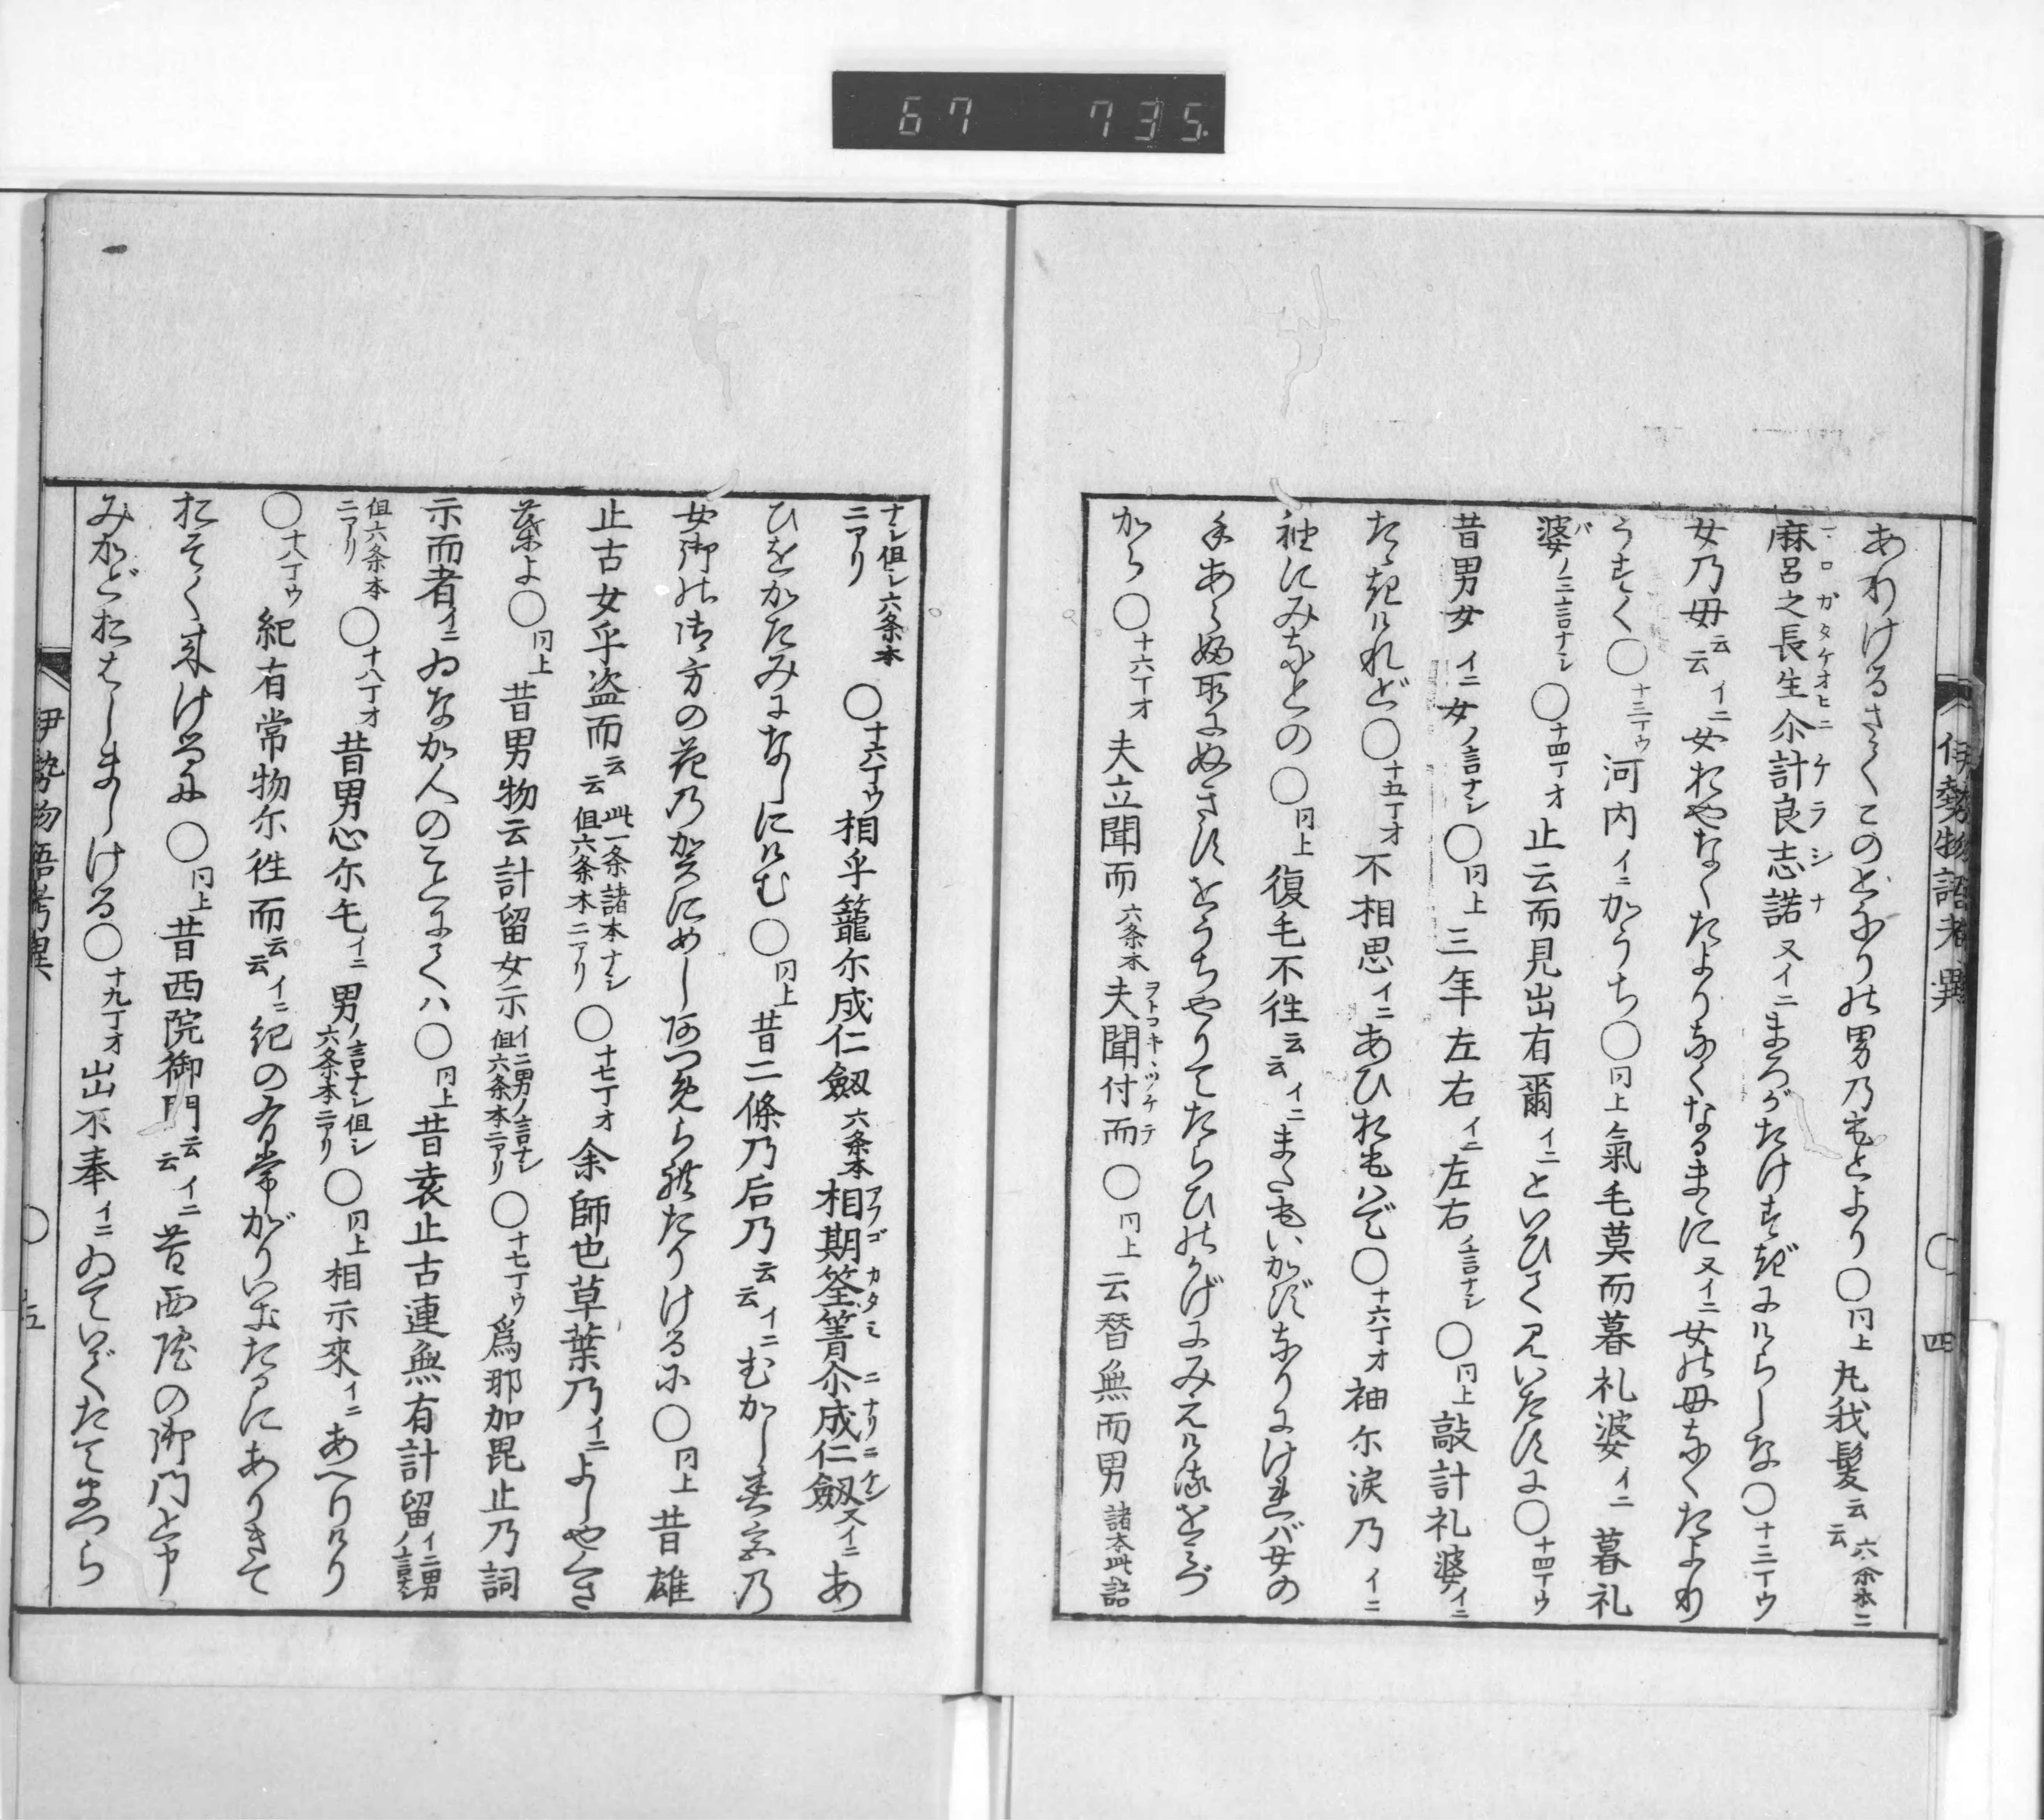 67 735.
伊勢物語考異
四
あわけるさてこのとなりの男乃もとより〇同上丸我髪云云六条本ニ
麻呂之長生尒計良志諾又イニまろがたけすぎにけらしな〇十三丁ウ
女乃毋云云イニ女おやなくたよりなくなるまゝに又イニ女の毋なくたより
うすく〇十三丁ウ河内イニかうち〇同上氣毛莫而暮礼婆イニ暮礼
婆ノ三言ナシ〇十四丁オ止云而見出有爾イニといひて見いたすに〇十四丁ウ
昔男女イニ女ノ言ナシ〇同上三年左右イニ左右ノ言ナシ〇同上敲計礼婆イニ
たゝきけれど〇十五丁オ不相思イニあひおもはで〇十六丁オ袖尒涙乃イニ
袖にみなとの〇同上復毛不徃云云イニまたもいかずなりにければ女の
手あらふ所にぬきすをうちやりてたらひのかげにみえけるを
から〇十六丁オ夫立聞而六条本夫聞付而〇同上云替無而男諸本此語
ナシ但シ六条本ニアリ〇十六丁ウ相乎籠尒成仁劔六条本相期筌箐尒成仁劔又イニあ
ひをかたみになしにけむ〇同上昔二條乃后乃云云イニむかし春宮乃
女御の御方の花乃賀にめしあつめられたりけるに〇同上昔雄
止古女乎盗而云云此一条諸本ナシ但六条本ニアリ〇十七丁オ余師也草葉乃イニよしやくさ
葉よ〇同上昔男物云計留女示イニ男ノ言ナシ但六条本ニアリ〇十七丁ウ爲耶加毘止乃詞
示而者イニゐなか人のことにてハ〇同上昔袁止古連無有計留イニ男ノ言ナシ
但六条本ニアリ〇十八丁オ昔男心尒乇イニ男ノ言ナシ但シ六条本ニアリ〇同上相示來イニあへりけり
〇十八丁ウ紀有常物尒徃而云云イニ紀の有常がりいきたるにありきて
おそく来けるに〇同上昔西院御門云云イニ昔西院の御門と申
みかどおはしましける〇十九丁オ出不奉イニゐていでたてまつら
伊勢物語考異
五